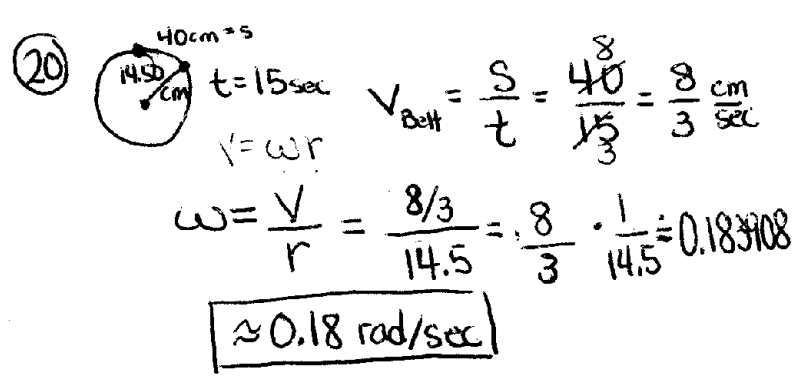 20
40cm = s
14.50 cm
t = 15 sec
V Belt = S/t = 40/15 = 8/3 cm/sec
8
3
V = ωr
ω = V/r = 8/3 / 14.5 = 8/3 · 1/14.5 ≐ 0.183908
≈ 0.18 rad/sec